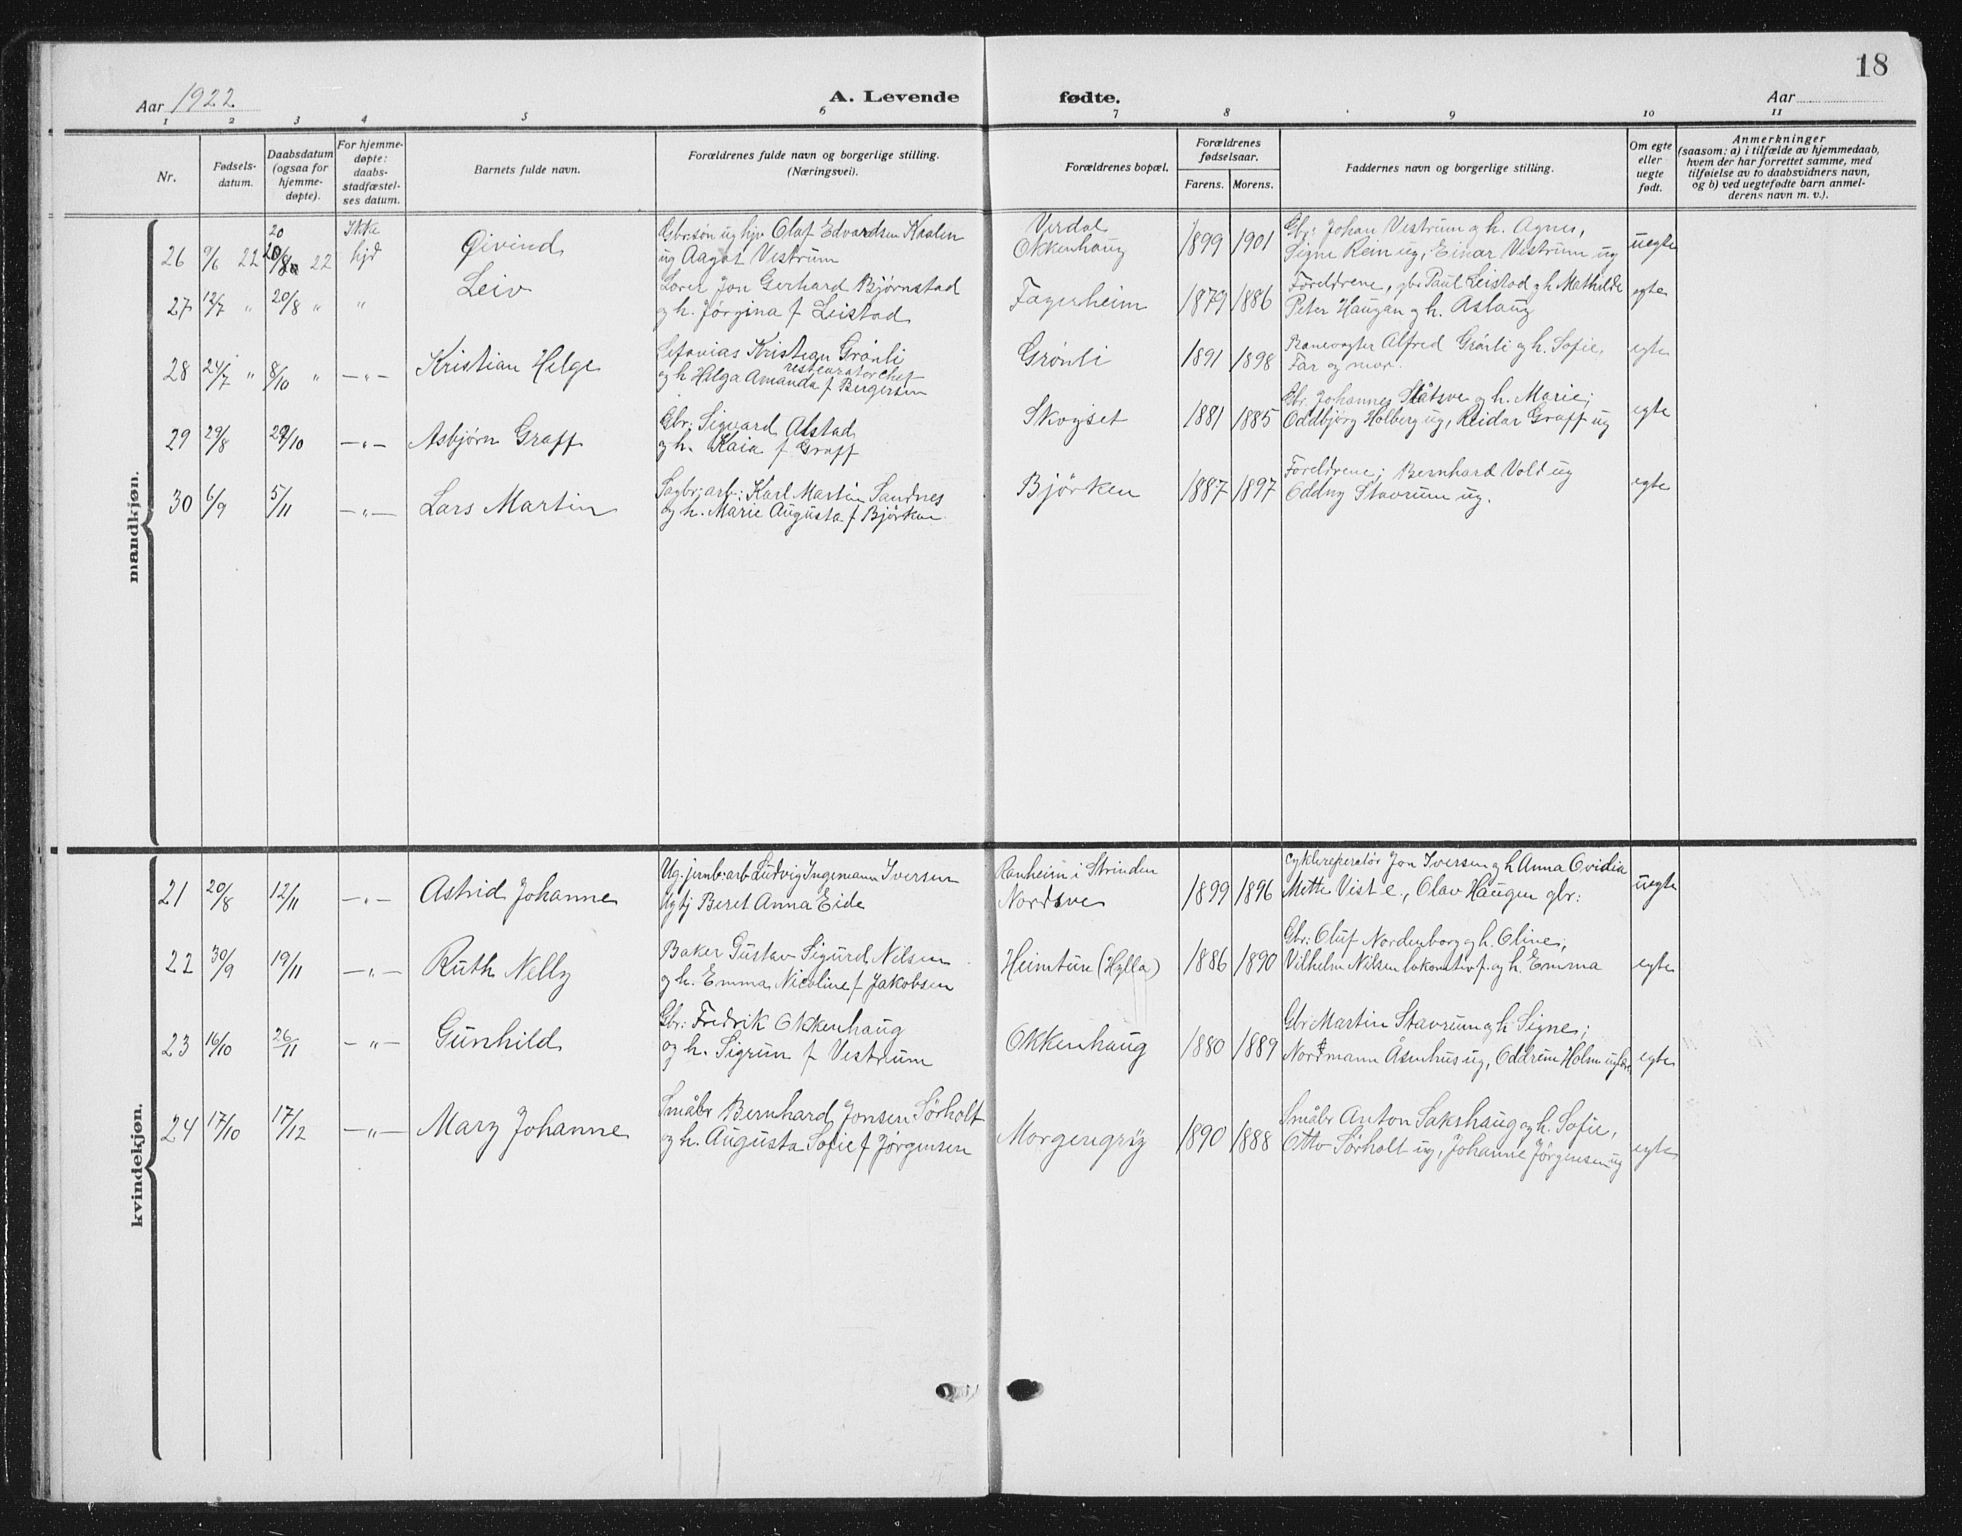 18
Aar 1922
A. Levende fødte.
Aar
1 2 3 4 5 6 7 8 9 10 11
Nr.
Fødsels-
datum.
Daabsdatum
(ogsaa for
hjemme-
døpte).
For hjemme-
døpte:
daabs-
stadfæstel-
ses datum.
Barnets fulde navn.
Forældrenes fulde navn og borgerlige stilling.
(Næringsvei).
Forældrenes bopæl.
Forældrenes
fødselsaar.
Farens. Morens.
Faddernes navn og borgerlige stilling.
Om egte
eller
uegte
født.
Anmerkninger
(saasom: a) i tilfælde av hjemmedaab,
hvem der har forrettet samme, med
tilføielse av to daabsvidners navn,
og b) ved uegtefødte barn anmel-
derens navn m. v.).
mandkjøn.
26 9/6 22 20/8 22 Ikke hjd Øivind
Gbr:søn ug hjv Olaf Edvardsen Kaalen
ug Aagot Vestrum
Verdal
Okkenhaug
1899 1901
Gbr: Johan Vestrum og h. Agnes,
Signe Rein ug, Einar Vestrum ug
uegte
27 12/7 " 20/8 " " Leiv
Lærer Jon Gerhard Bjørnstad
og h. Jørgina f Leistad
Fagerheim
1879 1886
Foreldrene, gbr Paul Leistad og h Mathilde
Peter Haugan og h. Aslaug
egte
28 24/7 " 8/10 " —"— Kristian Helge
Kristian Grönli
restauratørchef
og h Helga Amanda f Bergersen
Grönli
1891 1898
Banevogter Alfred Grönli og h. Sofie,
Far og mor.
egte
29 29/8 29/10 —"— Asbjørn Graff
Gbr: Sigvard Alstad
og h. Kaia f Graff
Skogset
1881 1885
Gbr. Johannes Slåtsve og h. Marie;
Oddbjörg Holberg ug, Reidar Graff ug
egte
30 6/9 5/11 —"— Lars Martin
Sagbr:arb: Karl Martin Sandnes
og h. Marie Augusta f Björken
Björken
1887 1897
Foreldrene; Bernhard Vold ug
Oddny Stavrum ug.
egte
kvindekjøn.
21 20/8 12/11 —"— Astrid Johanne
Ug. jernb:arb Ludvig Ingemann Iversen
Ug tj Beret Anna Eide
Ranheim i Strinden
Nordsve
1899 1896
Cyklereperatør Jon Iversen og h Anna Ovidia
Mette Viste, Olav Haugen gbr:
uegte
22 30/9 19/11 —"— Ruth Nelly
Baker Gustav Sigurd Nilsen
og h. Emma Nicoline f Jakobsen
Heimtun (Hylla)
1886 1890
Gbr: Oluf Nordenborg og h. Oline;
Vilhelm Nilsen lokomotivf. og h. Emma
egte
23 16/10 26/11 —"— Gunhild
Gbr: Fredrik Okkenhaug
og h. Sigrun f Vestrum
Okkenhaug
1880 1889
Gbr: Martin Stavrum og h Signe;
Nordmann Åsenhus ug, Oddrun Holm
egte
24 17/10 17/12 —"— Mary Johanne
Småbr Bernhard Jonsen Sörholt
og h. Augusta Sofie f Jörgensen
Morgengry
1890 1888
Småbr Anton Sakshaug og h. Sofie,
Otto Sörholt ug, Johanne Jörgensen ug
egte